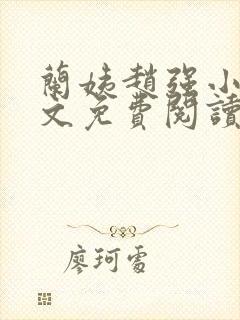 蘭姨趙強小
文免費閱讀
廖珂雪